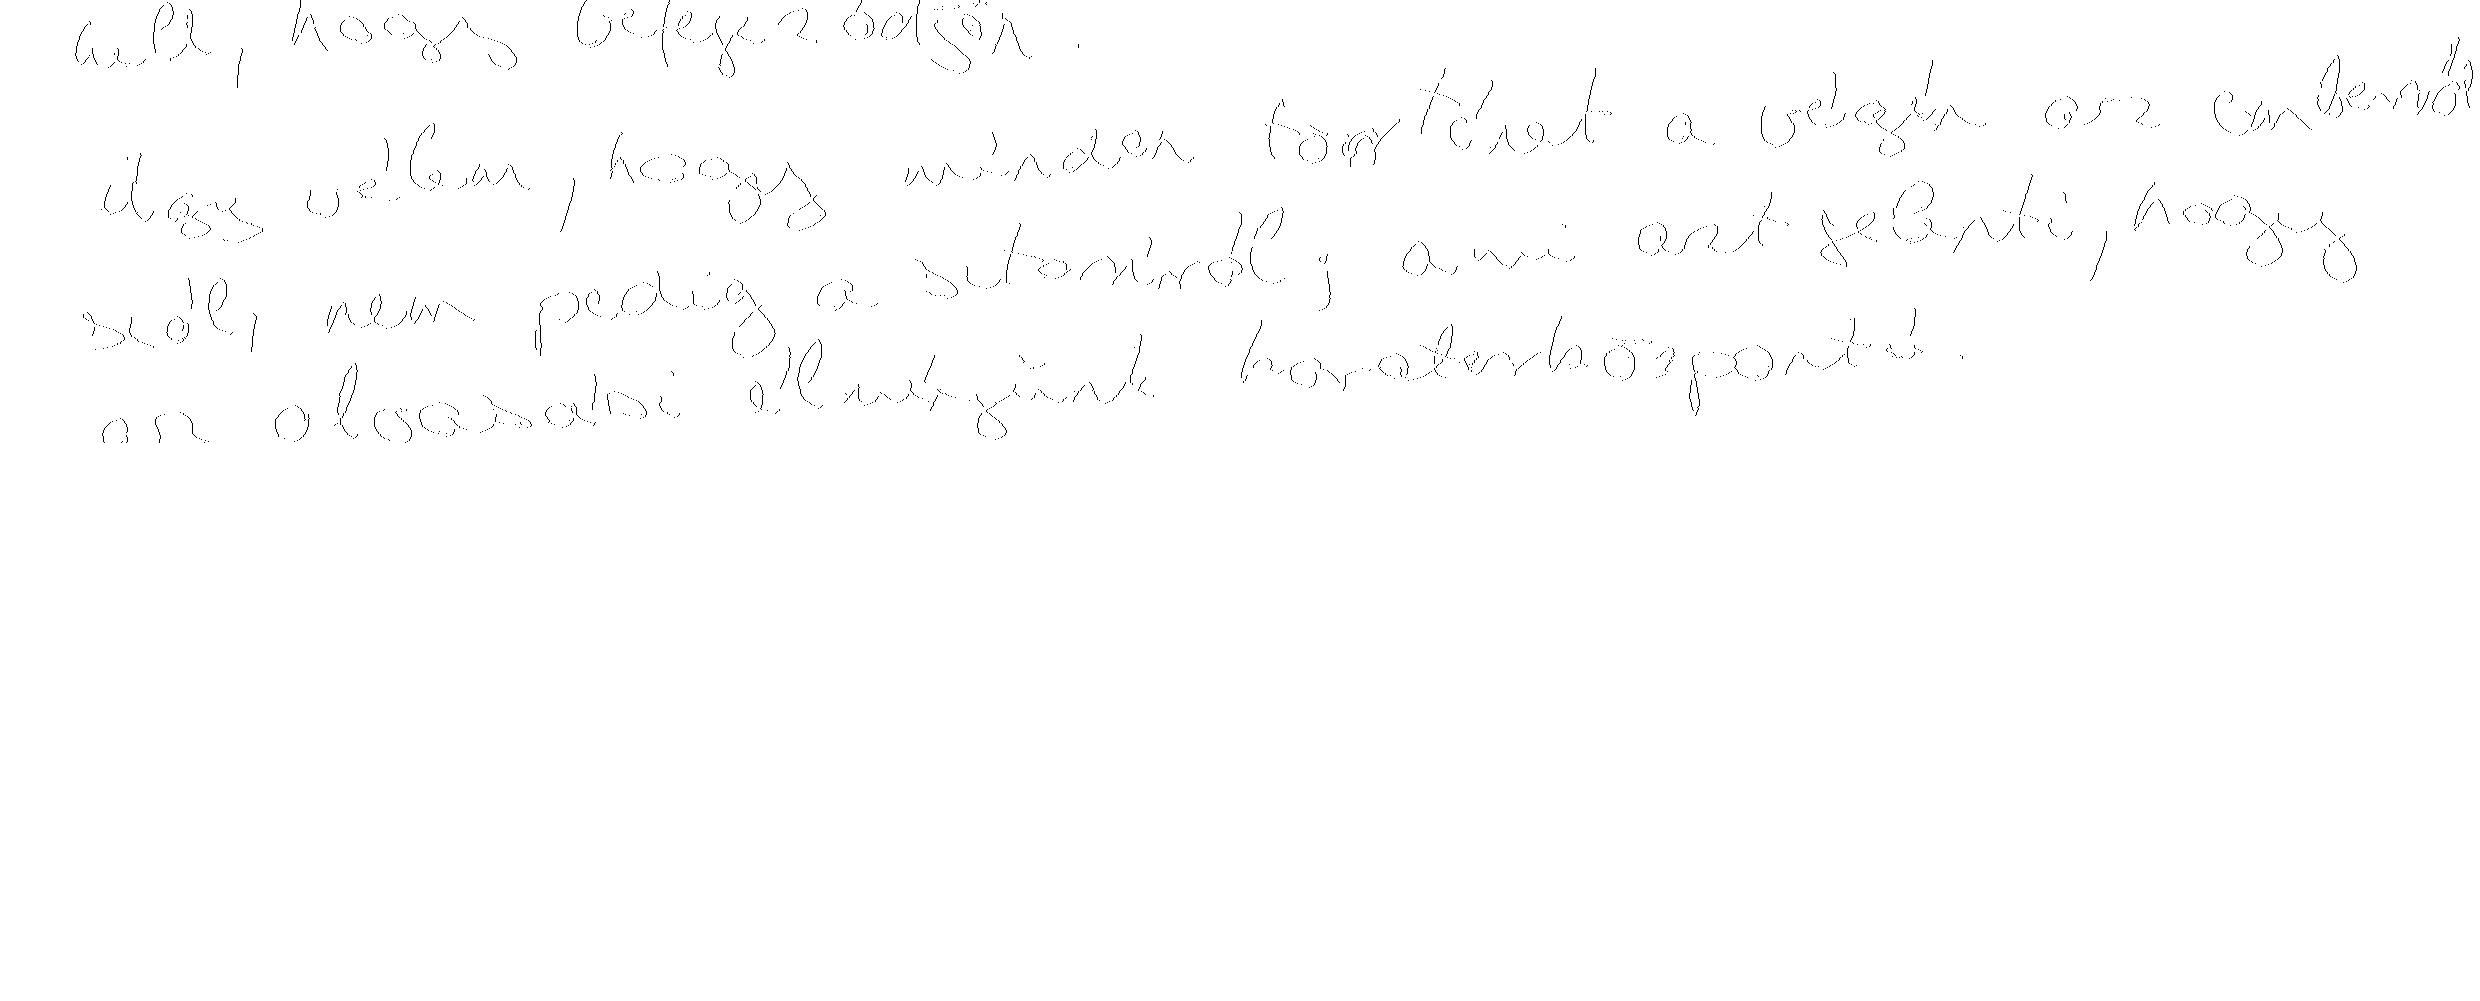 kell, hogy befejeződjön.
Úgy vélem, hogy minden történet a végén az emberről
szól, nem pedig a sztoriról; ami azt jelenti, hogy
az olvasási élményünk karakterközpontú.